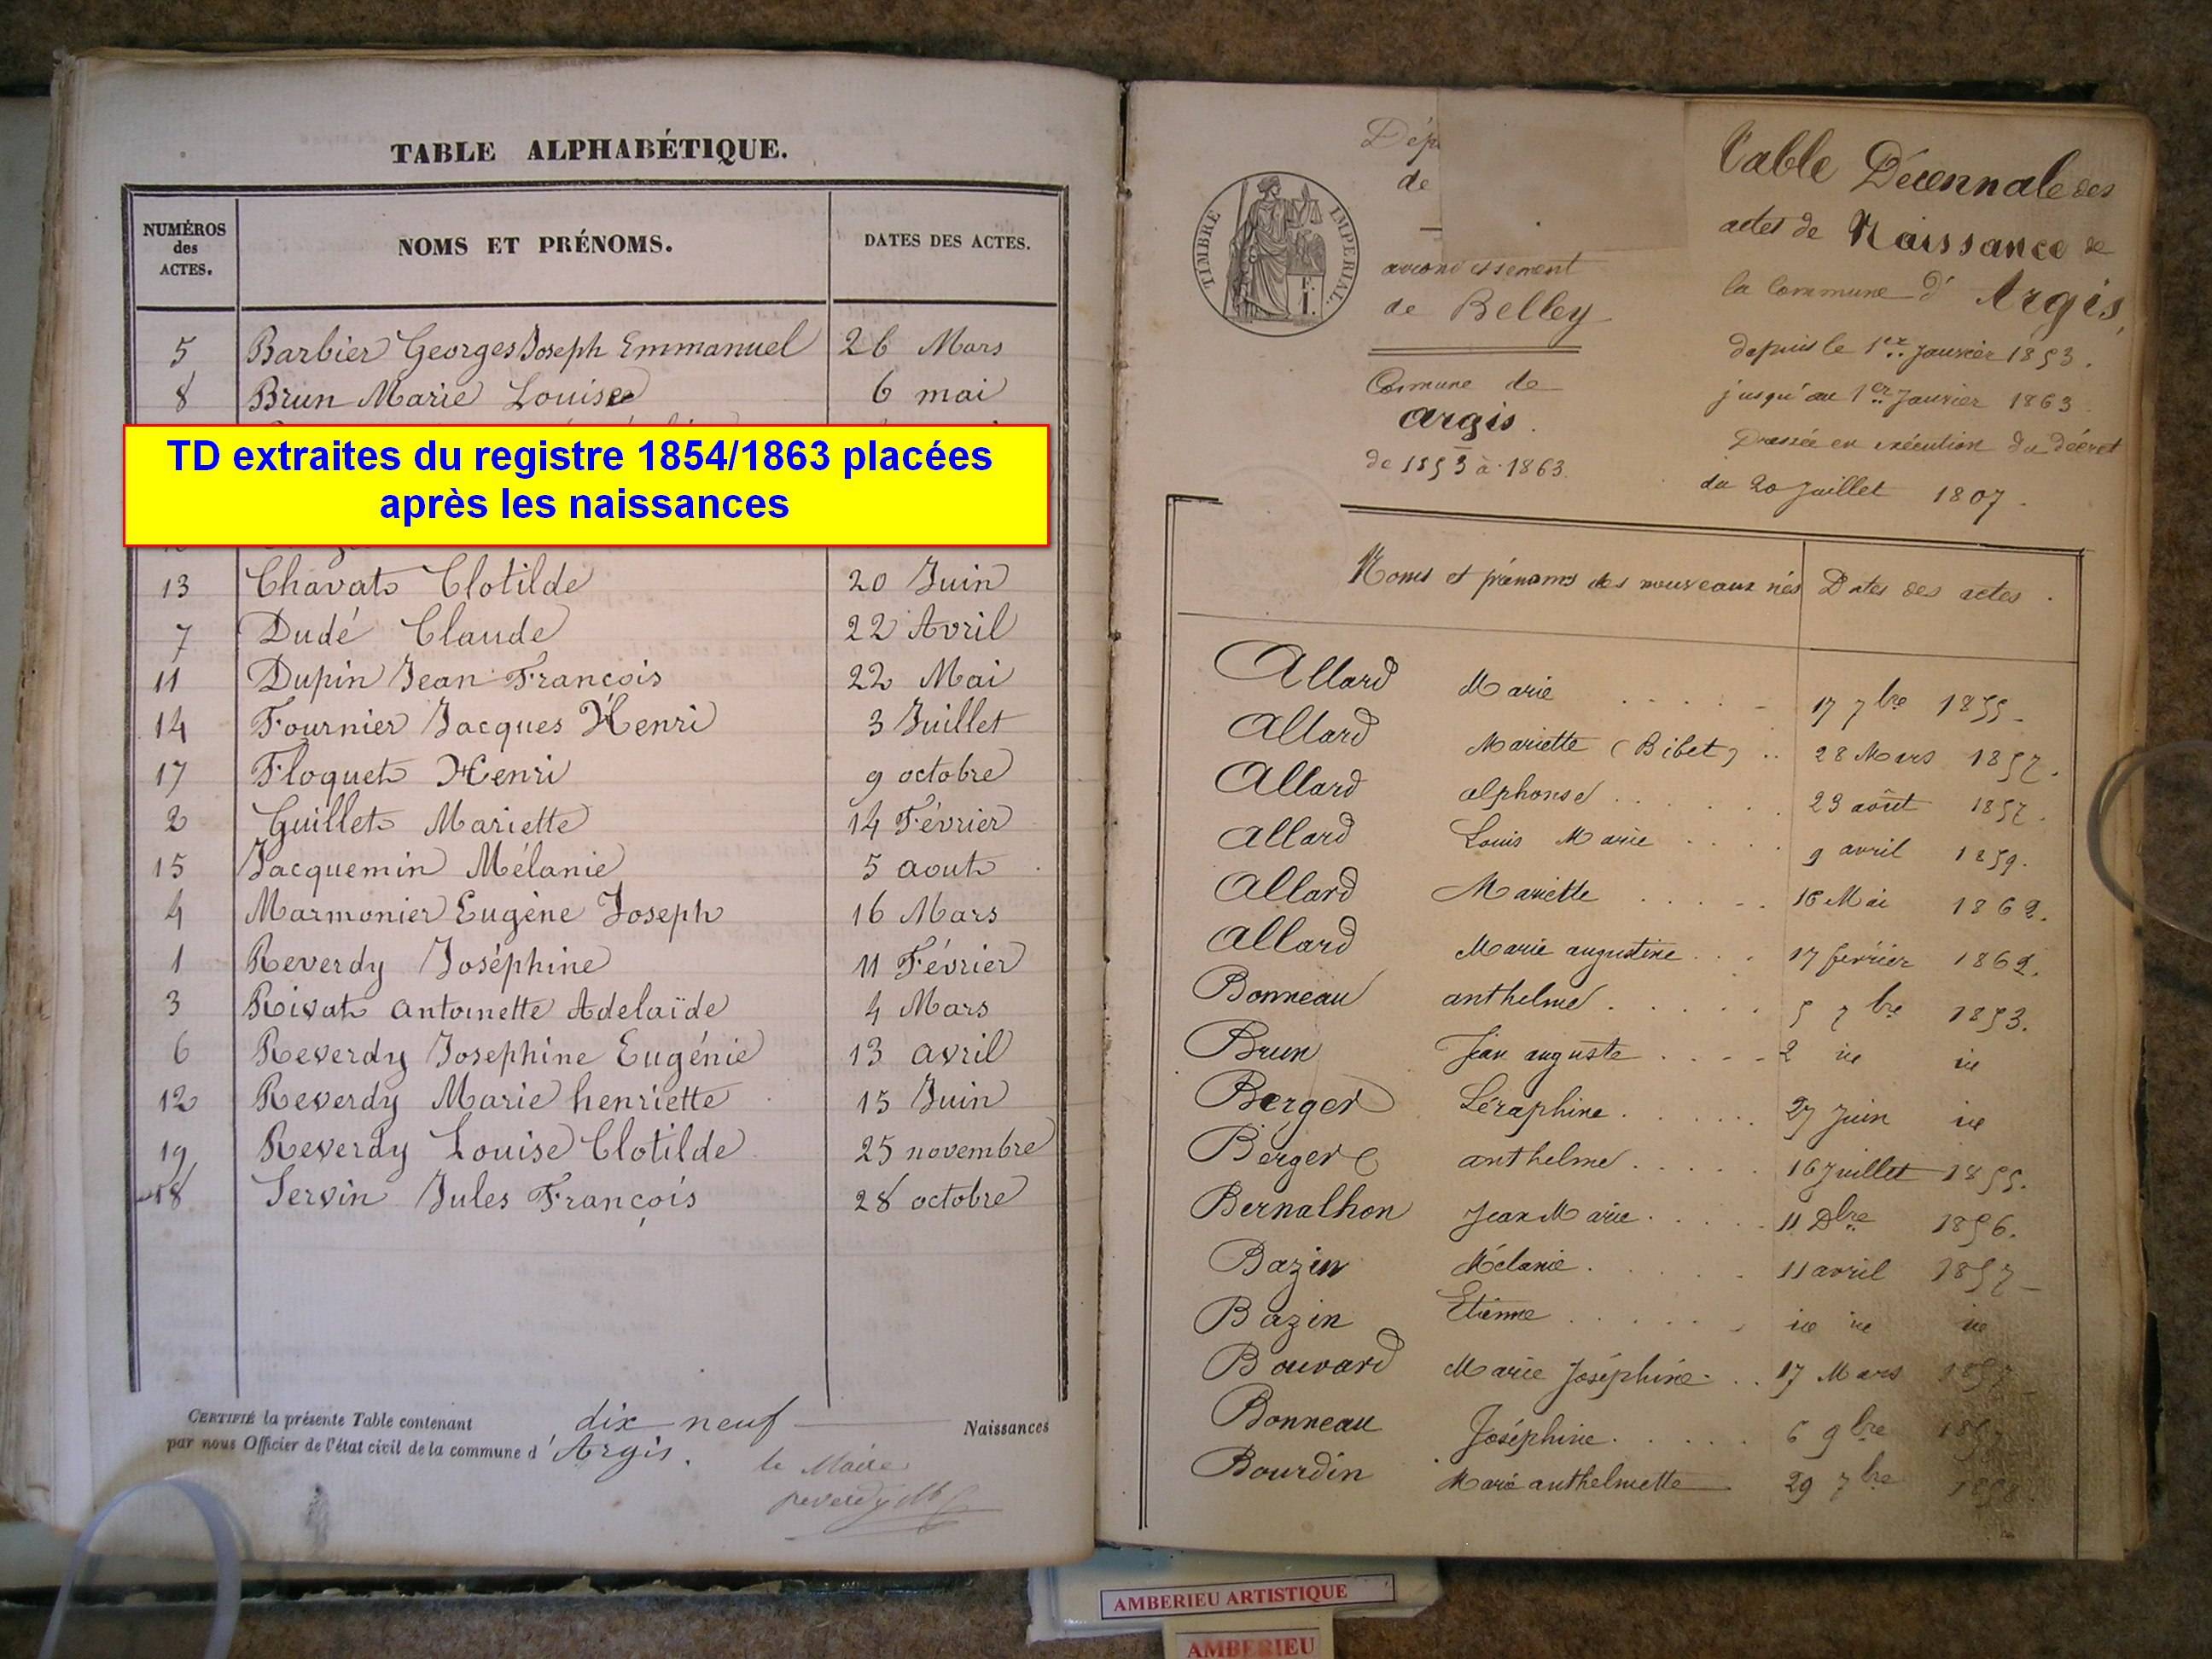 TABLE ALPHABÉTIQUE.
NUMÉROS des ACTES.
NOMS ET PRÉNOMS.
DATES DES ACTES.
5 Barbier Georges Joseph Emmanuel 26 Mars
8 Brun Marie Louise 6 mai
TD extraites du registre 1854/1863 placées
après les naissances
13 Chavat Clotilde 20 Juin
7 Dudé Claude 22 Avril
11 Dupin Jean François 22 Mai
14 Fournier Jacques Henri 3 Juillet
17 Floquet Henri 9 octobre
2 Guillet Mariette 14 Février
15 Jacquemin Mélanie 5 aout
4 Marmonier Eugène Joseph 16 Mars
1 Reverdy Joséphine 11 Février
3 Rivat Antoinette Adelaïde 4 Mars
6 Reverdy Josephine Eugénie 13 avril
12 Reverdy Marie henriette 15 Juin
19 Reverdy Louise Clotilde 25 novembre
18 Servin Jules François 28 octobre
CERTIFIÉ la présente Table contenant dix-neuf Naissances
par nous Officier de l'état civil de la commune d'Argis.
le Maire
TIMBRE IMPERIAL.
Dép
de
arrondissement
de Belley
Commune de
argis.
de 1853 à 1863.
Table Décennale des
actes de Naissance de
la Commune d'Argis,
depuis le 1er Janvier 1853.
jusqu'au 1er Janvier 1863.
Dressée en exécution du décret
du 20 Juillet 1807.
Noms et prénoms des nouveaux nés Dates des actes.
Allard Marie 17 7bre 1855
Allard Mariette (Bibet) 28 Mars 1857.
Allard alphonse 23 août 1857.
Allard Louis Marie 9 avril 1859.
Allard Mariette 16 Mai 1862.
Allard Marie augustine 17 février 1862.
Bonneau anthelme 5 7bre 1853.
Brun Jean auguste 2 id id
Berger Séraphine 27 Juin id
Berger anthelme 16 Juillet 1855.
Bernalhon Jean Marie 11 Dbre 1856.
Bazin Mélanie 11 avril 1857
Bazin Etienne id id id
Bouvard Marie Joséphine 17 Mars
Bonneau Joséphine 6 9bre
Bourdin Marie anthelmette 29 7bre
AMBERIEU ARTISTIQUE
AMBERIEU